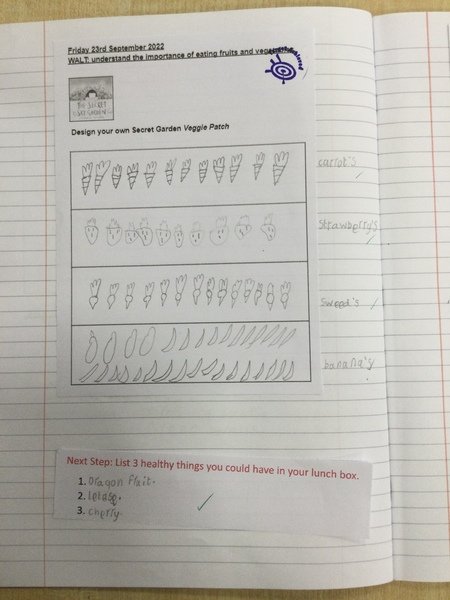 Friday 23rd September 2022
WALT: understand the importance of eating fruits and
THE SECRET
Design your own Secret Garden Veggie Patch
carrot's
Strawberry's
Sweed's
banana's
Next Step: List 3 healthy things you could have in your lunch box.
1. Dragon frait.
2. letase.
3. cherry